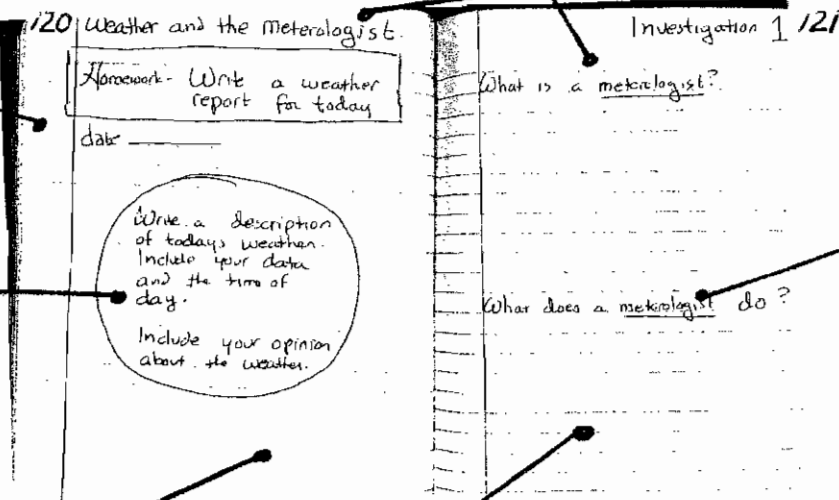 120 Weather and the Meterologist.
Homework - Write a weather
report for today
date
Write a description
of todays weather.
Include your data
and the time of
day.
Include your opinion
about the weather.
Investigation 1 121
What is a meterologist?
What does a meterologist do?